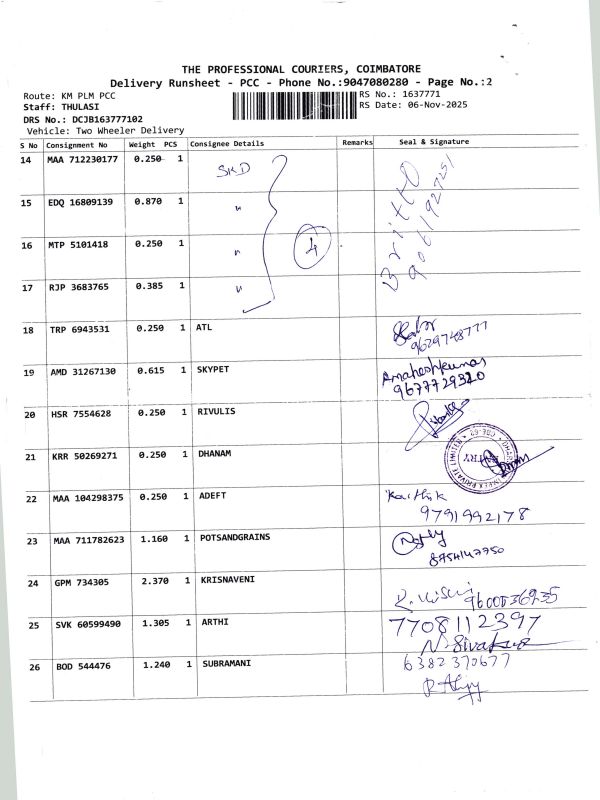 THE PROFESSIONAL COURIERS, COIMBATORE
Delivery Runsheet - PCC - Phone No.:9047080280 - Page No.:2
Route: KM PLM PCC
RS No.: 1637771
Staff: THULASI
RS Date: 06-Nov-2025
DRS No.: DCJB163777102
Vehicle: Two Wheeler Delivery
S No Consignment No Weight PCS Consignee Details Remarks Seal & Signature
14 MAA 712230177 0.250 1 SKD
15 EDQ 16809139 0.870 1 "
16 MTP 5101418 0.250 1 " 4
17 RJP 3683765 0.385 1 "
Britto
18 TRP 6943531 0.250 1 ATL
9629748777
19 AMD 31267130 0.615 1 SKYPET Amaheshkumar
9677729320
20 HSR 7554628 0.250 1 RIVULIS
21 KRR 50269271 0.250 1 DHANAM
22 MAA 104298375 0.250 1 ADEFT Karthik
9791992178
23 MAA 711782623 1.160 1 POTSANDGRAINS
8754147750
24 GPM 734305 2.370 1 KRISNAVENI
25 SVK 60599490 1.305 1 ARTHI 7708112397
N. Sivakum
26 BOD 544476 1.240 1 SUBRAMANI 6382370677